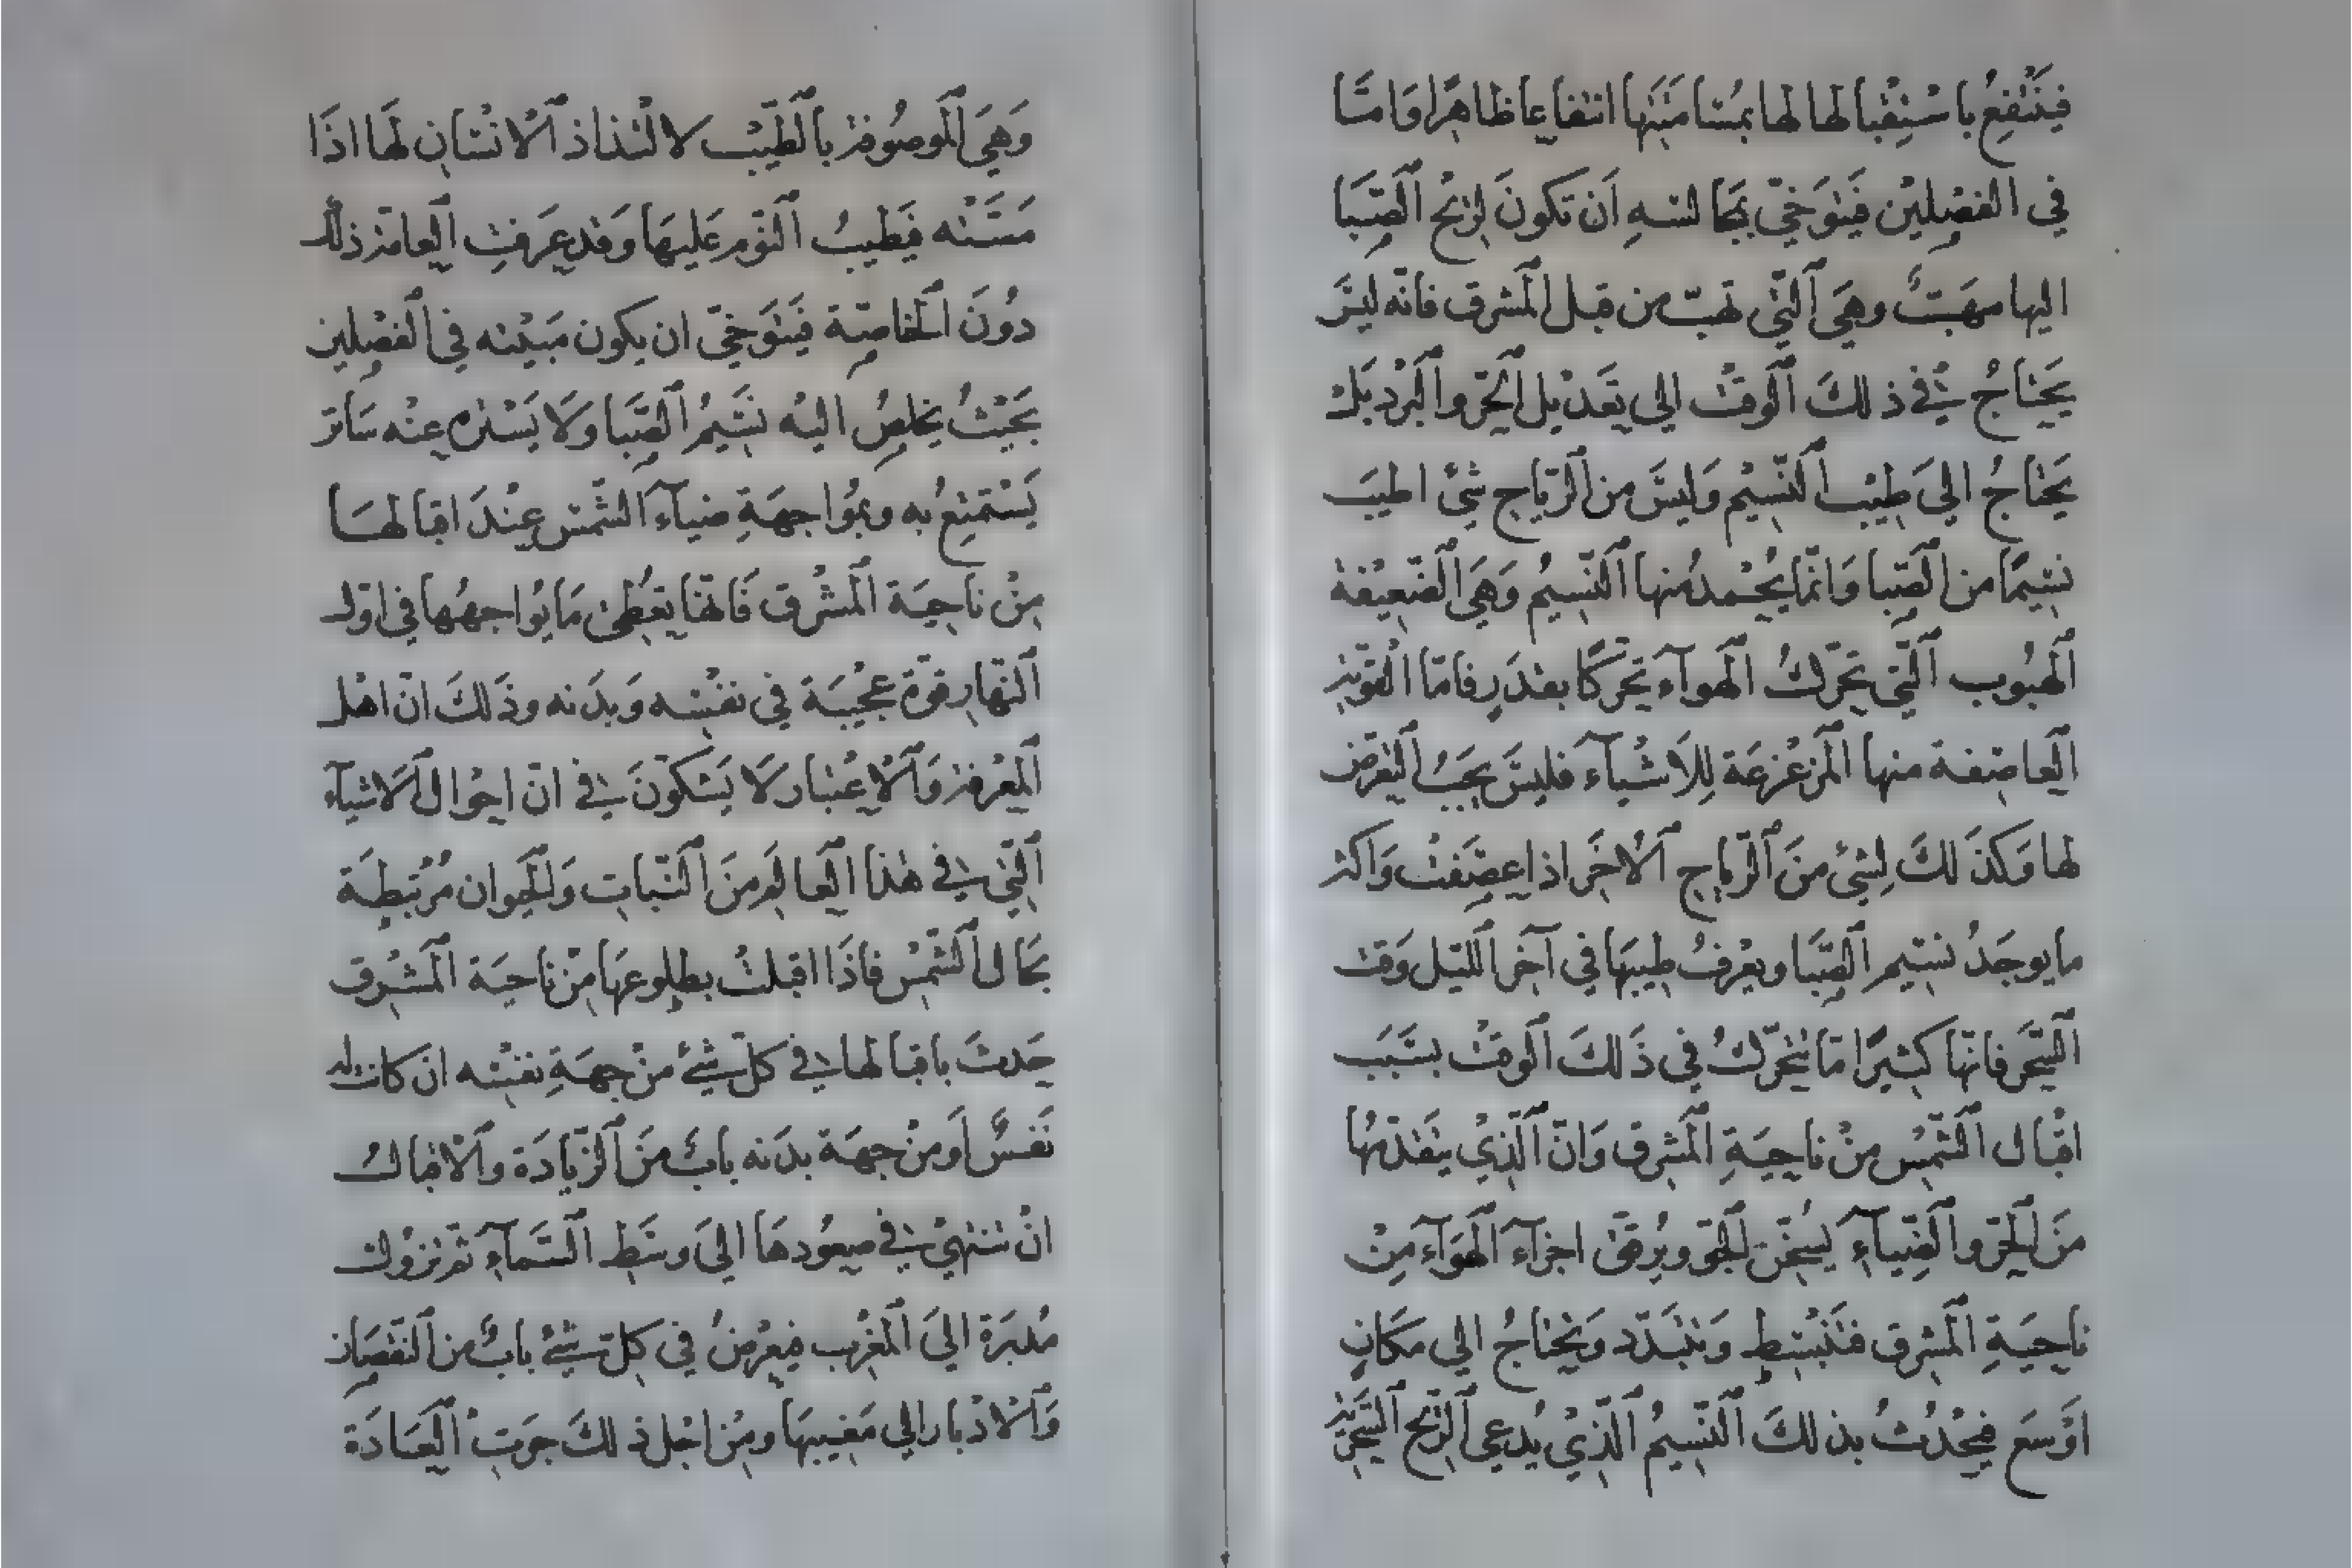 فَيَنْتَفِعُ بِاسْتِقْبَالها لها بمُسَامَتَتِهَا انتفاعا ظاهِرًا وَامّا
في الفصلين فَيَتَوَخّى بمَجَالسه اَن تكونَ لِرِيْحِ اَلصَّبَا
اليها مَهَبٌّ وهَيَ اَلَّتي تهبّ من قبل اَلمشرق فانّه ليسَ
يَحْتَاجُ في ذلكَ اَلوقْت الي تَعْديل اَلحَرّ واَلبَرْد بَلْ
يَحْتاجُ الىَ طِيْب اَلنّسِيْم وَليسَ من اَلرّياح شئ اطيبَ
نسِيْمًا من اَلصّبا وَانّما يُحْمدُ منها اَلنّسِيمُ وَهِيَ اَلضّعِيفة
اَلهبُوب اَلَّتي تحَرّكُ اَلهوآءَ تحَرّكًا بقدَرٍ فامّا القويّة
اَلعاصِفة منها اَلمزَعْزِعَة لِلاَشْيآءَ فليسَ يجبُ اَلتّعرّض
لها وَكذَلكَ لِشئ منَ اَلرّياحِ اَلاُخَر اذا عصَفتْ وَاكثر
ما يوجَدُ نسَيم اَلصَّبَا ويعْرفُ طيبهَا في آخر اَللّيل وَقت
اَلسَّحَر فانّهَا كثيرًا مّا يتحَرّكُ في ذَلكَ اَلوقتْ بسَبَب
اقْبَال اَلشّمْس منْ ناحِيَةِ اَلمَشرِق وَانّ اَلّذِيْ يتقَدّمُهَا
منَ اَلحَرّ واَلضِّيآءِ يُسخّن اَلجَوّ ويُرقّى اجزآءَ اَلهَوَآءَ مِنْ
ناحِيَةِ اَلمشرِق فتنْبَسِط وَتتبَدّد وَتحْتاجُ الي مكَانٍ
اوْسَع فيَحْدُثُ بذلكَ اَلنّسِيمُ اَلّذِيْ يُدعي اَلرّيح اَلسَّحَرِيّة
وَهيَ اَلموصُوفة باَلطّيْب لالتذاذ اَلانسَان لها اذَا
مَسّتْه فيَطيبُ اَلنّوم عَليهَا وَقد عَرَفتِ اَلعامّة ذلك
دوُنَ اَلخاصّة فَيَتَوَخّى ان يكون مَبيْته في اَلفصْلين
بحَيْثُ يخلصُ اليْه نسَيْمُ اَلصَّبا وَلا يَسْتره عنْه سَاتر
يَسْتمتِعُ به وبموُاجهَةِ ضيآءَ اَلشّمْس عِنْدَ اقبالها
مِنْ ناحِيَة اَلمَشْرق فَانّها تعُطى مَا يوُاجهُها في اوّل
اَلنّهار قوّة عجيْبَة في نفسْه وَبدَنه وذَلكَ انّ اهْل
اَلمعْرفة وَاَلاعْتبار لاَ يَشكّونَ في انّ احْوال اَلاشيآء
اَلّتي في هذا اَلعالم منَ اَلنّبات وَاَلحَيوان مُرْتبطَة
بحَال اَلشّمْس فاذَا اقبلتْ بطلوعهَا منْ ناحيَة اَلمَشْرق
حَدثَ باقبالها في كلّ شئ منْ جهَةِ نفسْه ان كانتْ له
نَفسٌ اَو منْ جهَة بدَنه بابٌ منَ اَلزّيادَة واَلاقبال
انْ تنتهيْ في صعُودهَا الىَ وسَطِ اَلسّمآءِ ثمّ تزوْل
مُدبرَة الىَ اَلمَغْرب فيعْرضُ في كلّ شئ بابٌ من اَلنّقصَان
وَاَلادْبار الي مَغيبهَا ومنْ اجْل ذلكَ جرَتِ اَلعَادَة